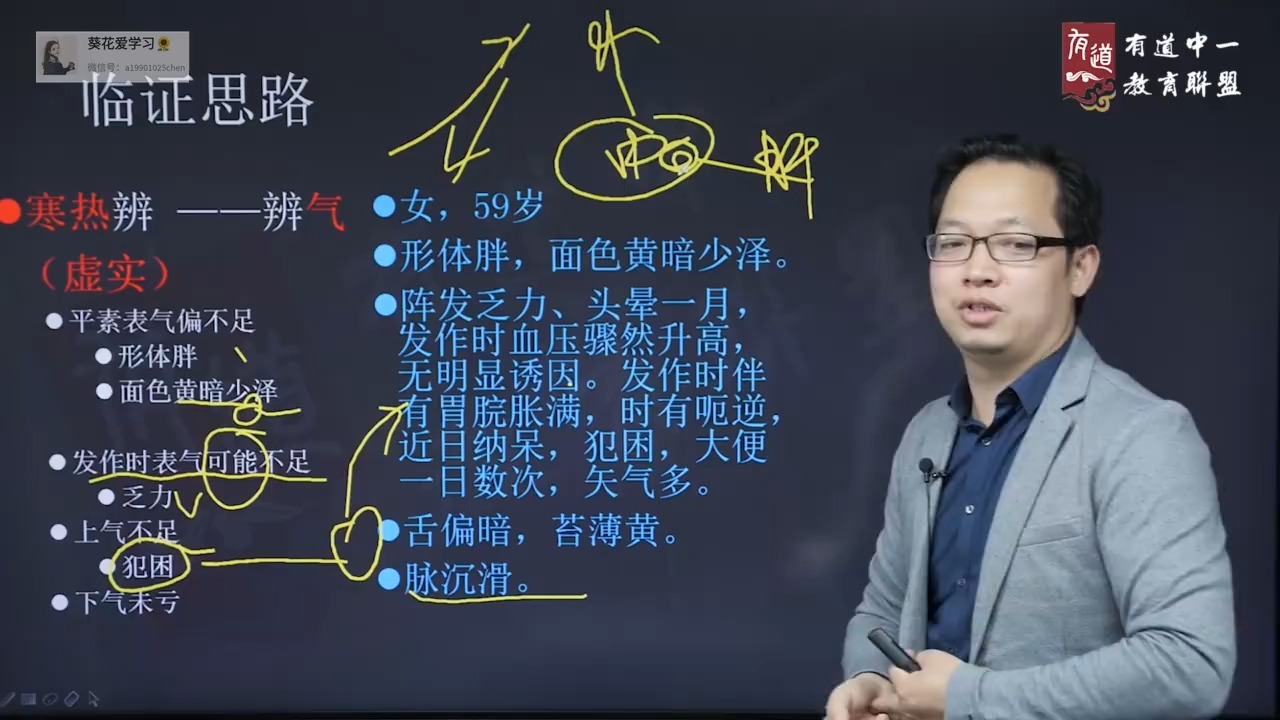 葵花爱学习🌻
微信号：a19901025chen
有道
有道中一
教育联盟
临证思路
寒热辨 ——辨气
（虚实）
平素表气偏不足
形体胖
面色黄暗少泽
发作时表气可能不足
乏力
上气不足
犯困
下气未亏
女，59岁
形体胖，面色黄暗少泽。
阵发乏力、头晕一月，
发作时血压骤然升高，
无明显诱因。发作时伴
有胃脘胀满，时有呃逆，
近日纳呆，犯困，大便
一日数次，矢气多。
舌偏暗，苔薄黄。
脉沉滑。